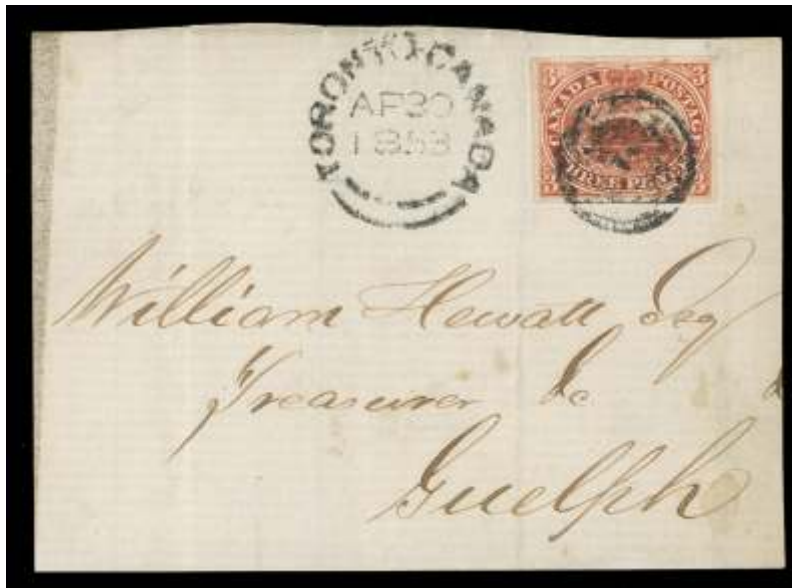 TORONTO·CANADA
AP 30
1853
3 CANADA POSTAGE 3
3 THREE PENCE 3
William Hewatt Esq
Treasurer &c
Guelph